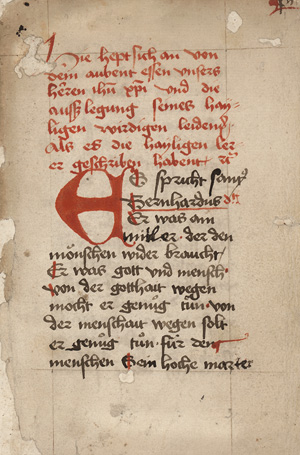 Hie hept sich an von
dem aubent essen unsers
herren ihũ xp̃i vnd die
auss legung seines hay-
ligen wirdigen leidens
Als es die hayligen ler
er geschriben habent
Es spricht sant
Bernhardus
Er was ain
mitler der den
mönschen wider braucht
Er was gott vnd mensch
von der gotthait wegen
mocht er genůg tůn von
der menschait wegen solt
er genůg tůn für den
menschen Sein hoche marter